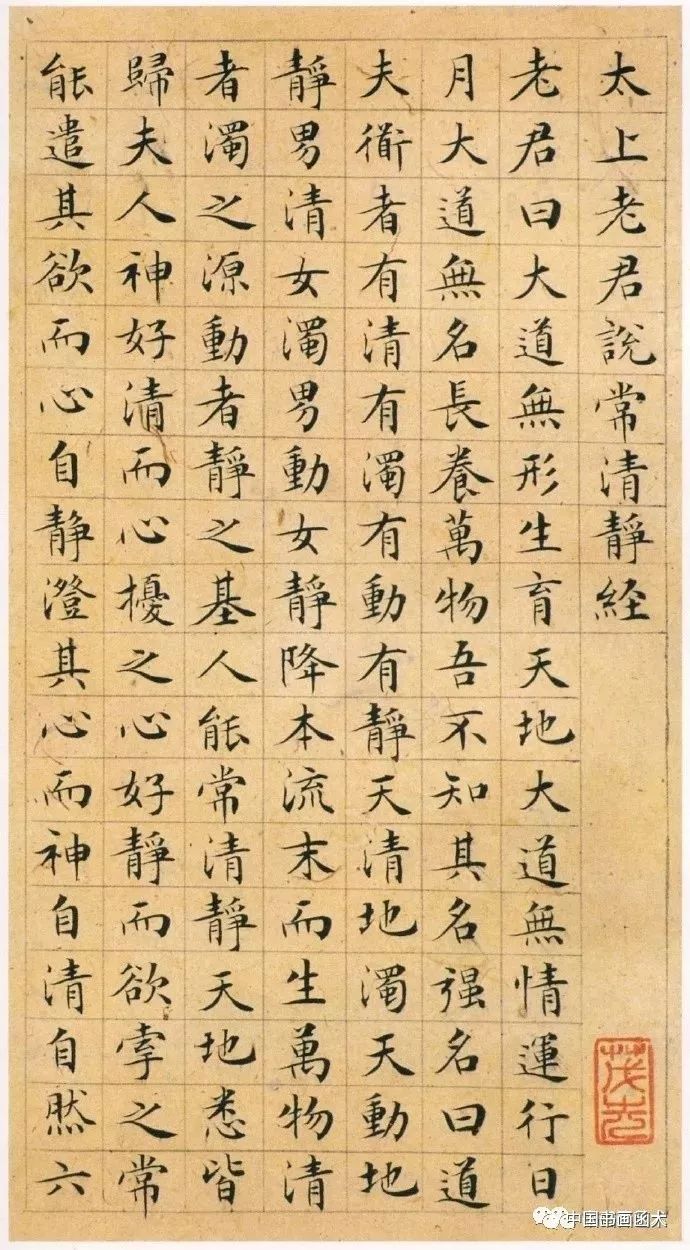 太上老君說常清靜経
老君曰大道無形生育天地大道無情運行日
月大道無名長養萬物吾不知其名强名曰道
夫衜者有清有濁有動有靜天清地濁天動地
靜男清女濁男動女靜降本流末而生萬物清
者濁之源動者靜之基人能常清靜天地悉皆
歸夫人神好清而心擾之心好靜而欲牽之常
能遣其欲而心自静澄其心而神自清自然六
中国书画函术